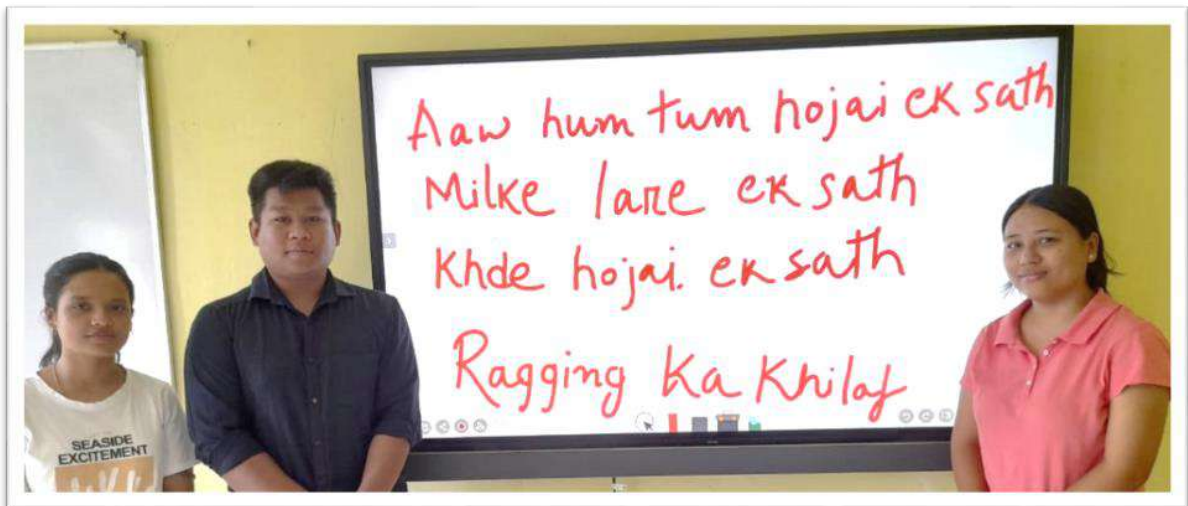 Aaw hum tum hojai ek sath
Milke lare ek sath
Khde hojai. ek sath
Ragging Ka Khilaf
SEASIDE
EXCITEMENT